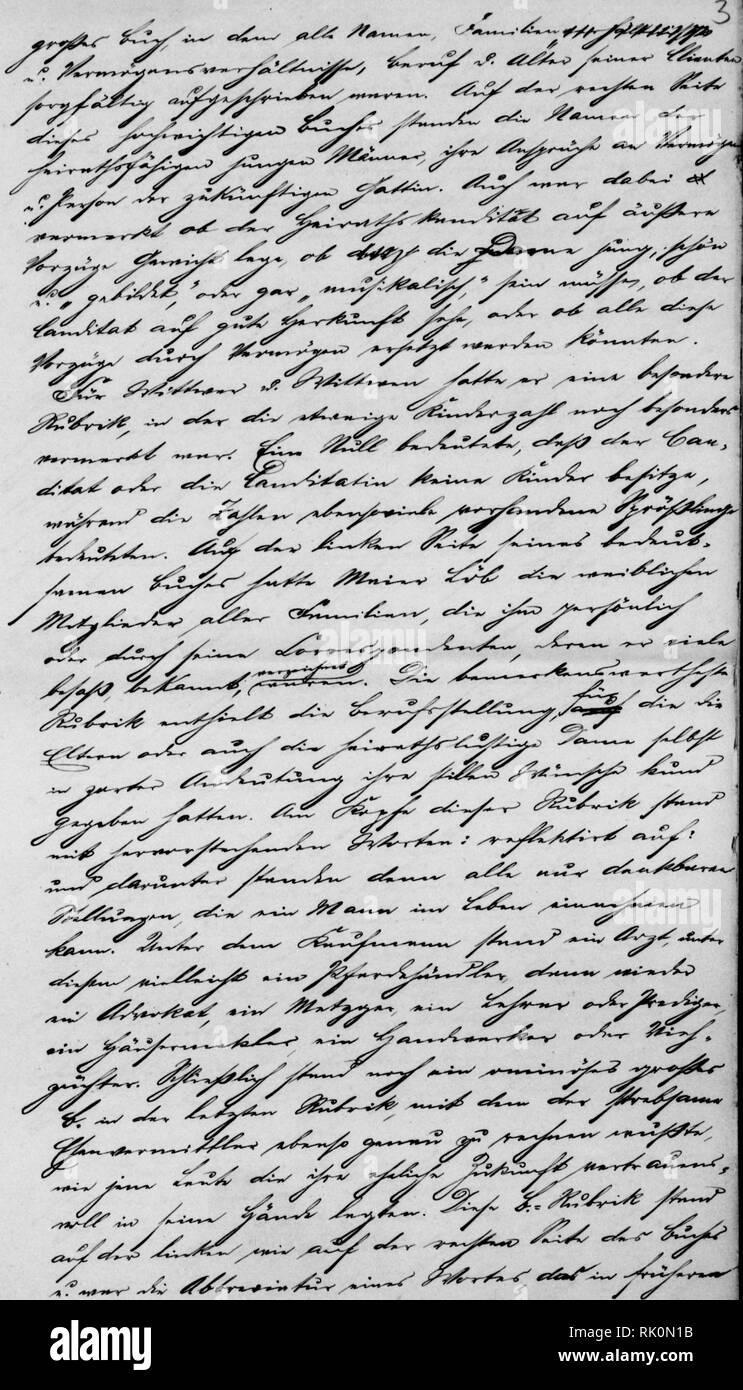 3
großes Buch, in dem alle Namen, Familien
u. Vermögensverhältnisse, Beruf u. Alter seiner Clienten
sorgfältig aufgeschrieben waren. Auf der rechten Seite
dieses hochwichtigen Buches standen die Namen der
heirathsfähigen jungen Männer, ihre Ansprüche an Vermögen
u. Person der zukünftigen Gattin. Auch war dabei
vermerkt ob der Heirathskanditat auf äußere
Vorzüge Gewicht lege, ob die Dame jung, schön
u. „gebildet," oder gar „musikalisch," sein müsse, ob der
Canditat auf gute Herkunft sehe, oder ob alle diese
Vorzüge durch Vermögen ersetzt werden könnten.
Für Wittwer u. Wittwen hatte er eine besondere
Rubrik, in der die etwaige Kinderzahl noch besonders
vermerkt war. Eine Null bedeutete, daß der Can-
ditat oder die Canditatin keine Kinder besitze,
während die Zahlen ebensoviele vorhandene Sprößlinge
bedeuteten. Auf der linken Seite seines bedeut-
samen Buches hatte Maier Löb die weiblichen
Mitglieder aller Familien, die ihm persönlich
oder durch seine Correspondenten, deren er viele
besaß, bekannt, verzeichnet waren. Die bemerkenswertheste
Rubrik enthielt die Berufsstellung, für die die
Eltern oder auch die heirathslustige Dame selbst
in zarter Andeutung ihre stillen Wünsche kund
gegeben hatten. Am Kopfe dieser Rubrik stand
mit hervorstechenden Worten: reflektirt auf:
und darunter standen denn alle nur denkbaren
Stellungen, die ein Mann im Leben einnehmen
kann. Unter dem Kaufmann stand ein Arzt, unter
diesem vielleicht ein Pferdehändler, dann wieder
ein Advokat, ein Metzger, ein Lehrer oder Prediger,
ein Häusermakler, ein Handwerker oder Vieh-
züchter. Schließlich stand noch ein ominöses großes
B. in der letzten Rubrik, mit dem der strebsame
Ehevermittler ebenso genau zu rechnen wußte,
wie jene Leute die ihre eheliche Zukunft vertrauens-
voll in seine Hände legten. Diese B.-Rubrik stand
auf der linken wie auf der rechten Seite des Buches
u. war die Abbreviatur eines Wortes das in früheren
alamy
Image ID: RK0N1B
www.alamy.com